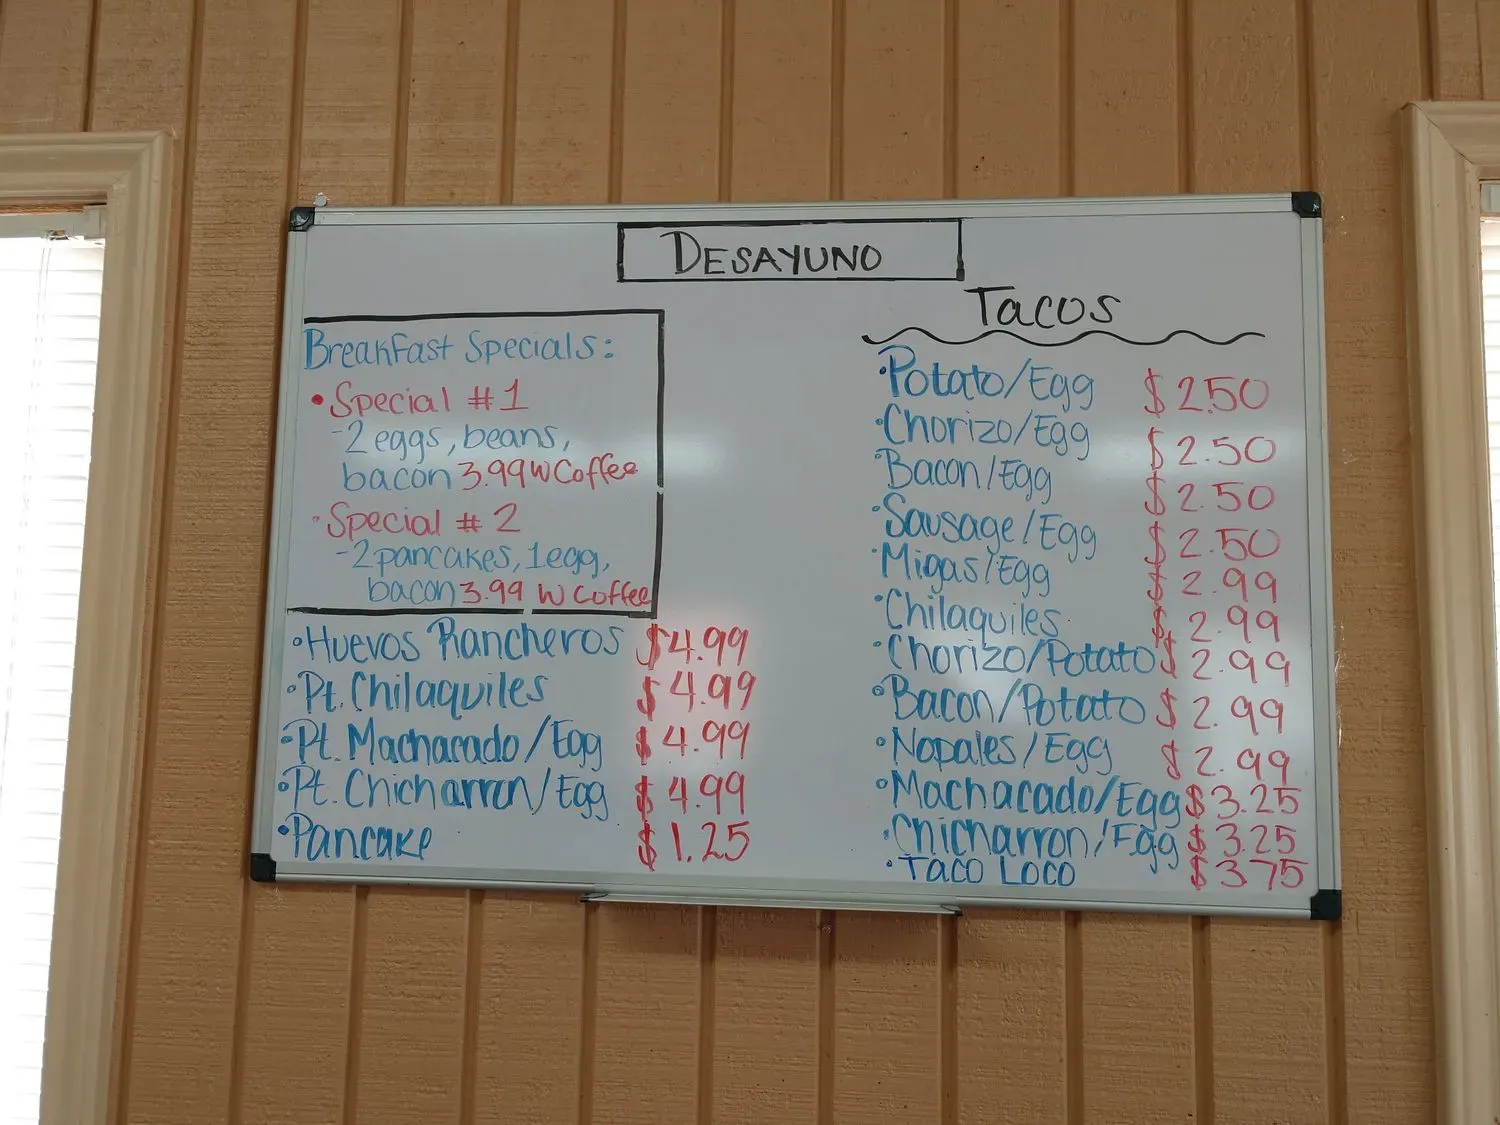 DESAYUNO
Breakfast Specials:
• Special #1
-2 eggs, beans,
bacon 3.99 W Coffee
• Special #2
-2 pancakes, 1 egg,
bacon 3.99 W Coffee
• Huevos Rancheros $4.99
• Pt. Chilaquiles $4.99
• Pt. Machacado/Egg $4.99
• Pt. Chicharron/Egg $4.99
• Pancake $1.25
Tacos
• Potato/Egg $2.50
• Chorizo/Egg $2.50
Bacon/Egg $2.50
• Sausage/Egg $2.50
• Migas/Egg $2.99
• Chilaquiles $2.99
• Chorizo/Potato $2.99
• Bacon/Potato $2.99
• Nopales/Egg $2.99
• Machacado/Egg $3.25
• Chicharron/Egg $3.25
• TACO LOCO $3.75